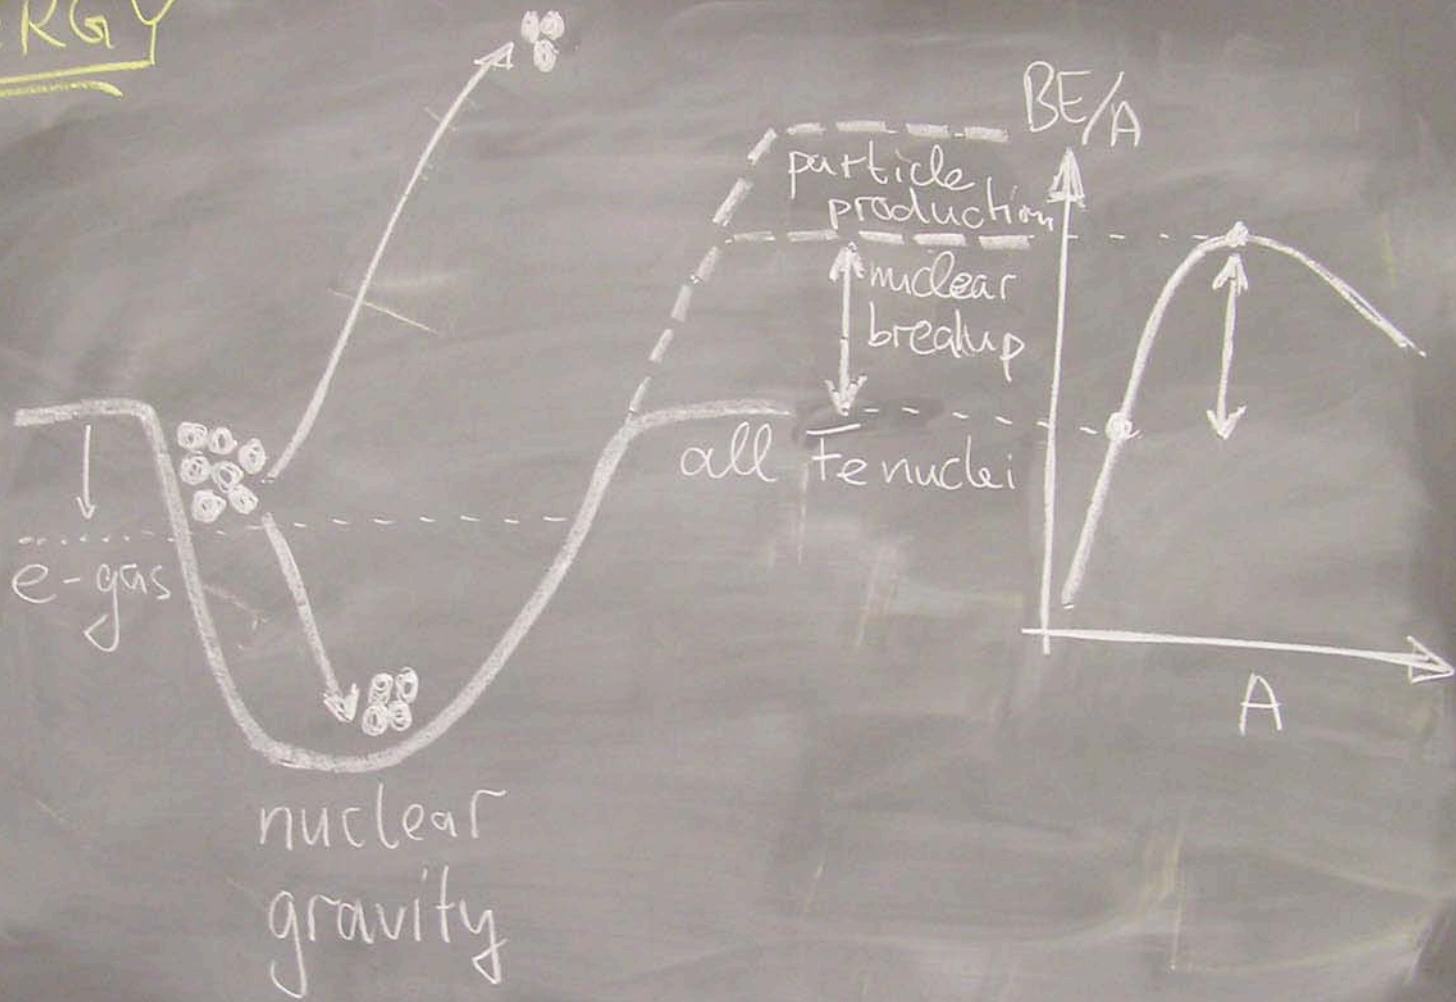 ERGY
BE/A
particle
production
nuclear
breakup
all Fe nuclei
e-gas
A
nuclear
gravity